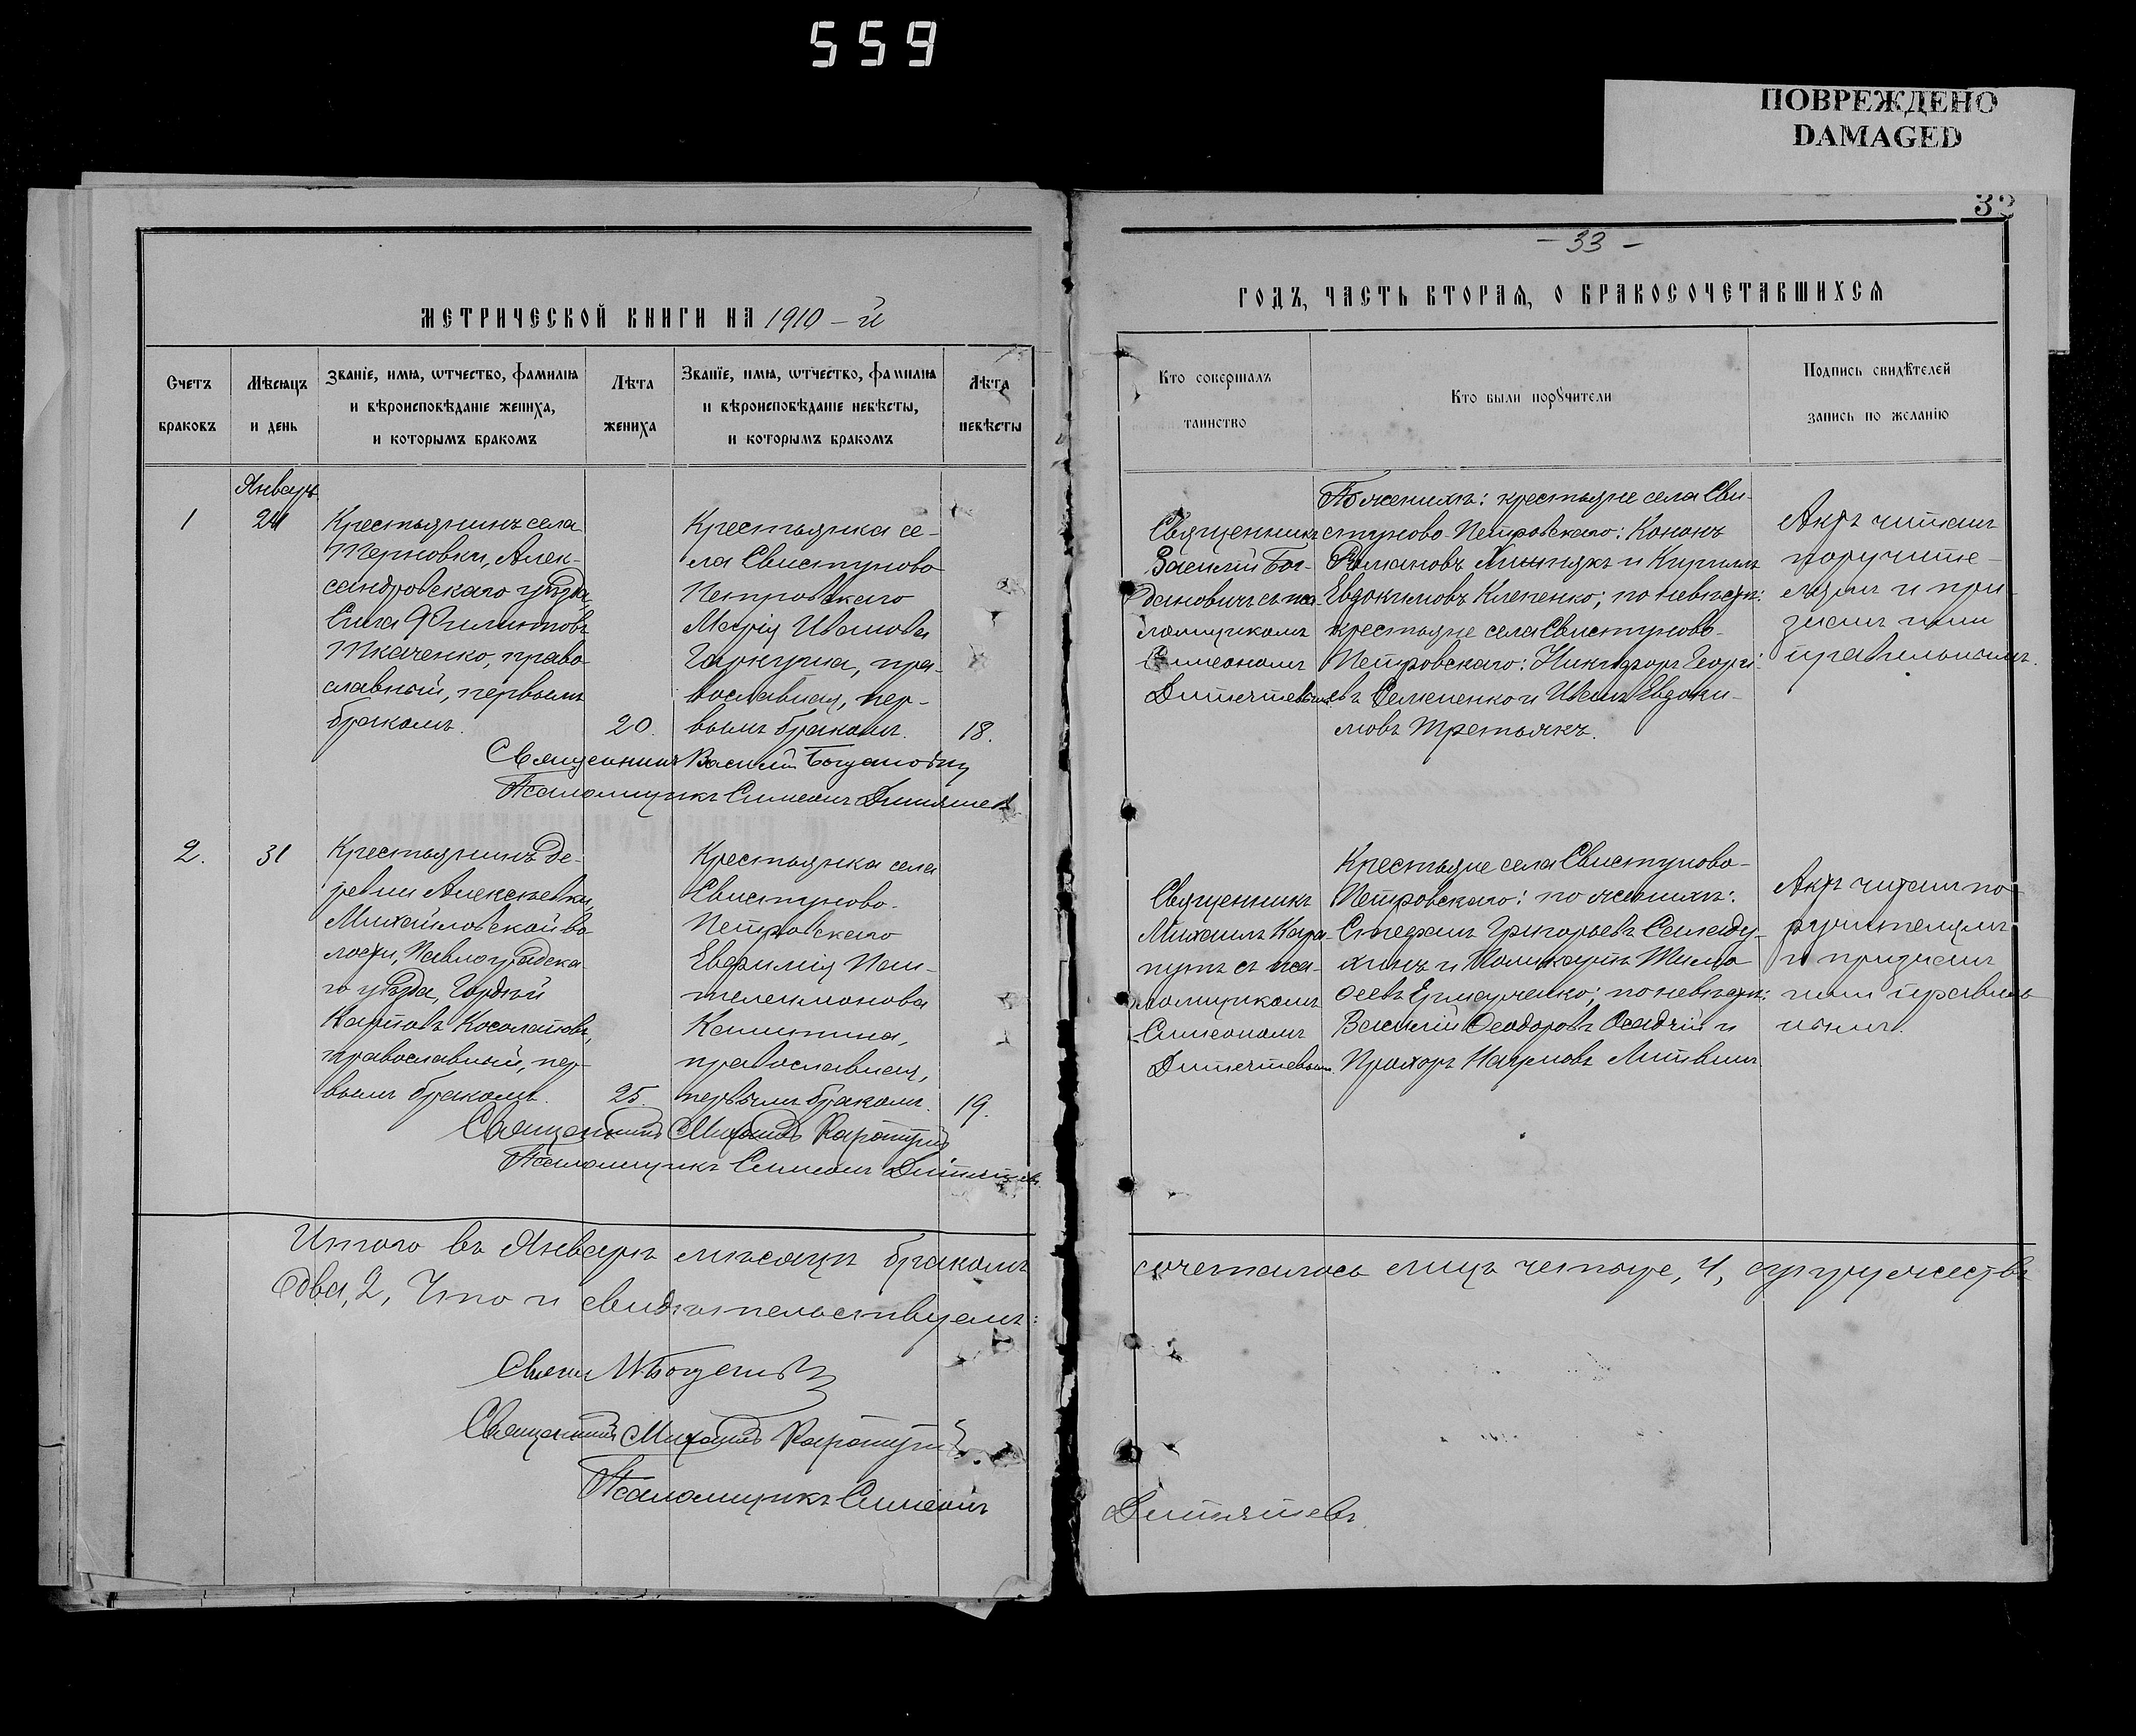 559
ПОВРЕЖДЕНО
DAMAGED
32
- 33 -
МЕТРИЧЕСКОЙ КНИГИ НА 1910 - й
ГОДЪ, ЧАСТЬ ВТОРАЯ, О БРАКОСОЧЕТАВШИХСЯ
Счетъ
браковъ
Мѣсяцъ
и день
Званіе, имя, ѡтчество, фамилія
и вѣроисповѣданіе жениха,
и которымъ бракомъ
Лѣта
жениха
Званіе, имя, ѡтчество, фамилія
и вѣроисповѣданіе невѣсты,
и которымъ бракомъ
Лѣта
невѣсты
Кто совершалъ
таинство
Кто были порꙋчители
Подпись свидѣтелей
запись по желанію
Январь
1
24
Крестьянинъ села
Терновки, Алек-
сандровскаго уѣзда,
Сила Филиповъ
Ткаченко, право-
славный, первымъ
бракомъ.
20.
Крестьянка се-
ла Свистуново
Петровскаго
Марія Иванова
Гаркуша, пра-
вославная, пер-
вымъ бракомъ.
18.
Священникъ
Василій Бог-
дановичъ съ пса-
ломщикомъ
Симеономъ
Дитятевымъ
По женихѣ: крестьяне села Сви-
стуново-Петровскаго: Кононъ
Романовъ и Кириллъ
Евдокимовъ Клепенко; по невѣстѣ:
крестьяне села Свистуново-
Петровскаго: Никифоръ Георгі-
евъ Семененко и Иванъ Евдоки-
мовъ Третьякъ.
Актъ читанъ
поручите-
лямъ и при-
знанъ ими
правильнымъ.
Священникъ Василій Богдановичъ
Псаломщикъ Симеонъ Дитятевъ
2.
31
Крестьянинъ де-
ревни Алексѣевки,
Михайловской во-
лости, Павлоградска-
го уѣзда, Гордѣй
Карповъ Косолаповъ,
православный, пер-
вымъ бракомъ.
25.
Крестьянка села
Свистуново-
Петровскаго
Евфимія Пан-
телеимонова
Калинина,
православная,
первымъ бракомъ.
19.
Священникъ
Михаилъ Кара-
путъ съ пса-
ломщикомъ
Симеономъ
Дитятевымъ.
Крестьяне села Свистуново-
Петровскаго: по женихѣ:
Стефанъ Григорьевъ Саладу-
хинъ и Поликарпъ Тимо-
ѳеевъ Ермарченко; по невѣстѣ:
Василій Ѳеодоровъ Осадчій и
Прохоръ Наумовъ Литвинъ.
Актъ читанъ по-
ручителямъ
и признанъ
ими правиль-
нымъ.
Священникъ Михаилъ Карапутъ
Псаломщикъ Симеонъ Дитятевъ.
Итого въ Январѣ мѣсяцѣ бракомъ
сочеталось лицъ четыре, 4, супружествъ
два, 2, Что и свидѣтельствуемъ:
Священникъ Михаилъ Карапутъ
Псаломщикъ Симеонъ
Дитятевъ.